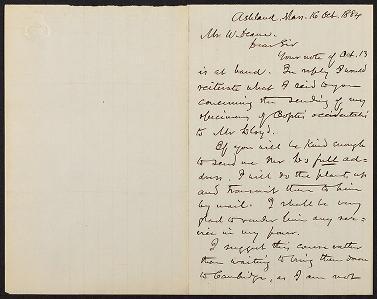 Ashland, Mass. 16 Oct. 1884
Mr. W. Deane.
Dear Sir
Your note of Oct. 13
is at hand. In reply I would
reiterate what I said to you
concerning the sending of my
specimens of Coptis occidentalis
to Mr Lloyd.
If you will be kind enough
to send me his full ad-
dress, I will do the plants up
and transmit them to him
by mail. I shall be very
glad to render him any ser-
vice in my power.
I suggest this course rather
than waiting to bring them down
to Cambridge, as I am not